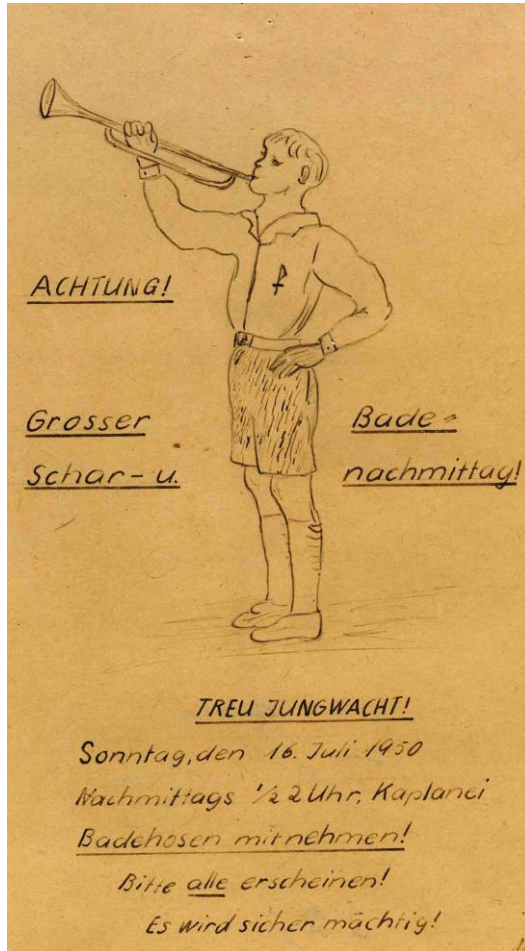 ACHTUNG!
Grosser Bade-
Schar-u. nachmittag!
TREU JUNGWACHT!
Sonntag, den 16. Juli 1950
Nachmittags 1/2 2 Uhr, Kaplanei
Badehosen mitnehmen!
Bitte alle erscheinen!
Es wird sicher mächtig!